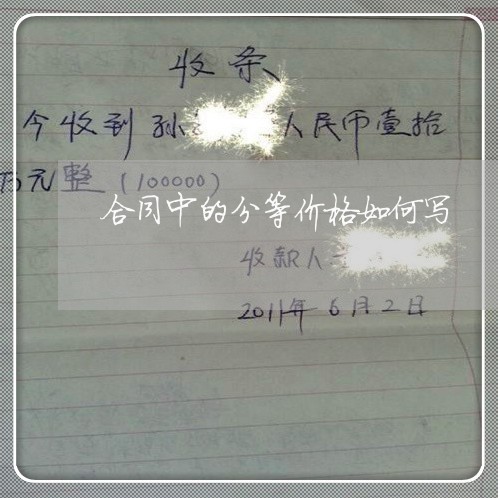 收条
今收到孙 人民币壹拾
万元整（100000）
合同中的分等价格如何写
收款人
2011年6月2日